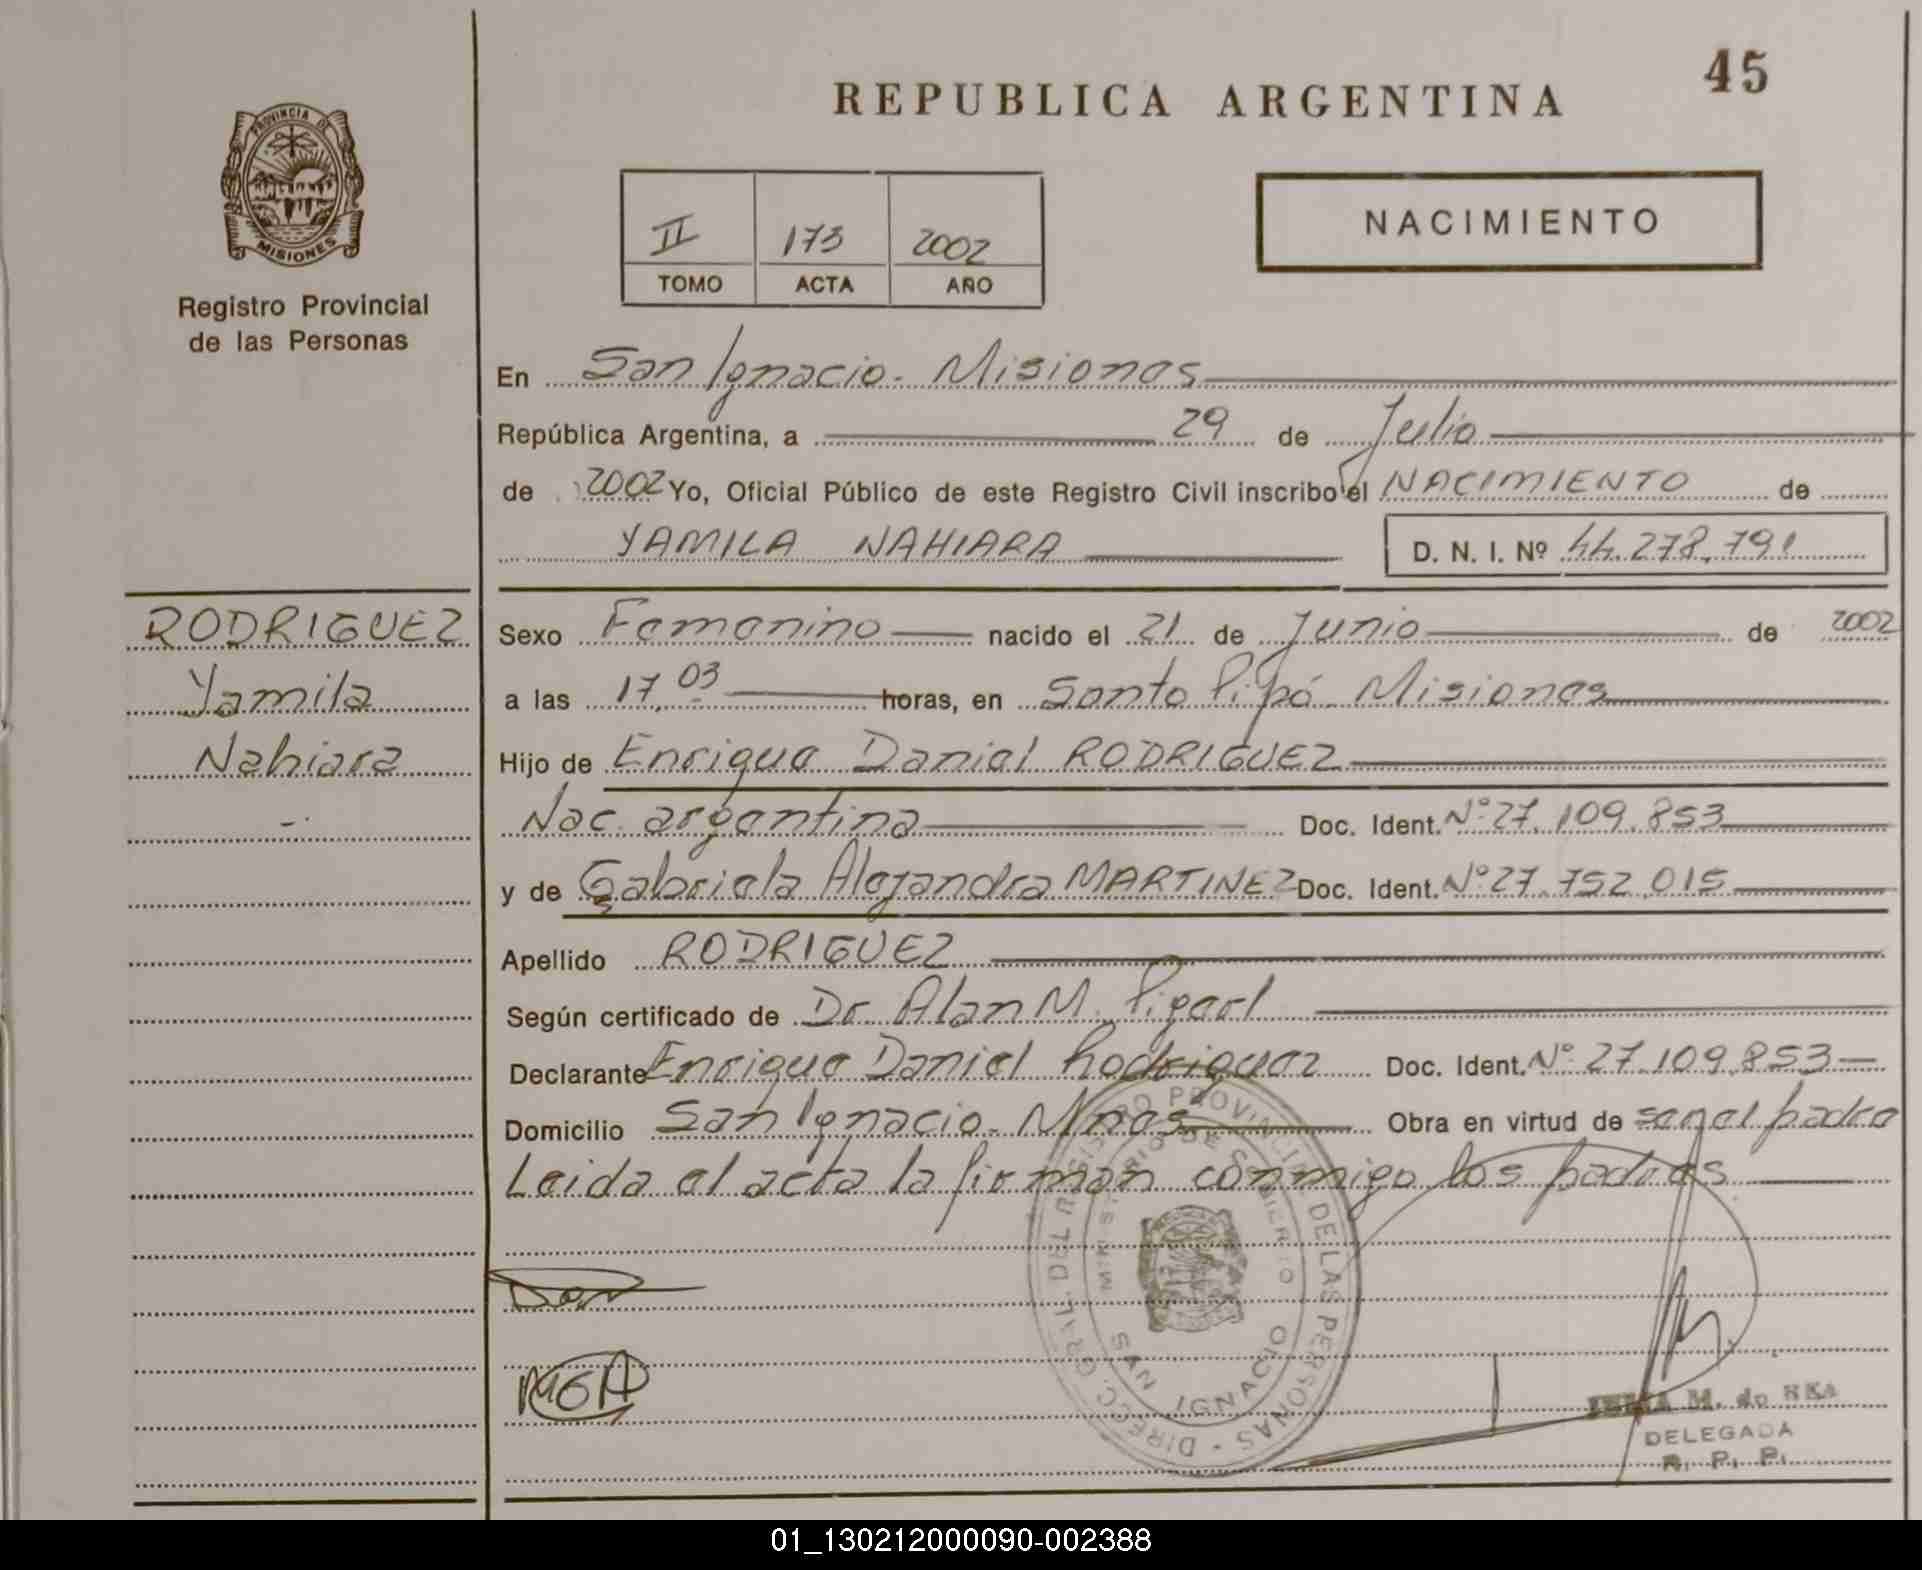 REPUBLICA ARGENTINA
45
PROVINCIA DE
MISIONES
Registro Provincial
de las Personas
II 173 2002
TOMO ACTA AÑO
NACIMIENTO
En San Ignacio - Misiones
República Argentina, a 29 de Julio
de 2002 Yo, Oficial Público de este Registro Civil inscribo el NACIMIENTO de
YAMILA NAHIARA D. N. I. Nº 44.278.791
RODRIGUEZ
Yamila
Nahiara
Sexo Femenino nacido el 21 de Junio de 2002
a las 17,03 horas, en Santo Pipó - Misiones
Hijo de Enrique Daniel RODRIGUEZ
Nac. argentina Doc. Ident. Nº 27.109.853
y de Gabriela Alejandra MARTINEZ Doc. Ident. Nº 27.752.015
Apellido RODRIGUEZ
Según certificado de Dr. Alan M.
Declarante Enrique Daniel Rodriguez Doc. Ident. Nº 27.109.853
Domicilio San Ignacio - Mnes Obra en virtud de ser el padre
Leida el acta la firman conmigo los padres
DIRECC. GRAL. DTRO. REGISTRO PROVINCIAL DE LAS PERSONAS
MINISTERIO DE GOBIERNO
SAN IGNACIO
M. de
DELEGADA
R. P. P.
01_130212000090-002388